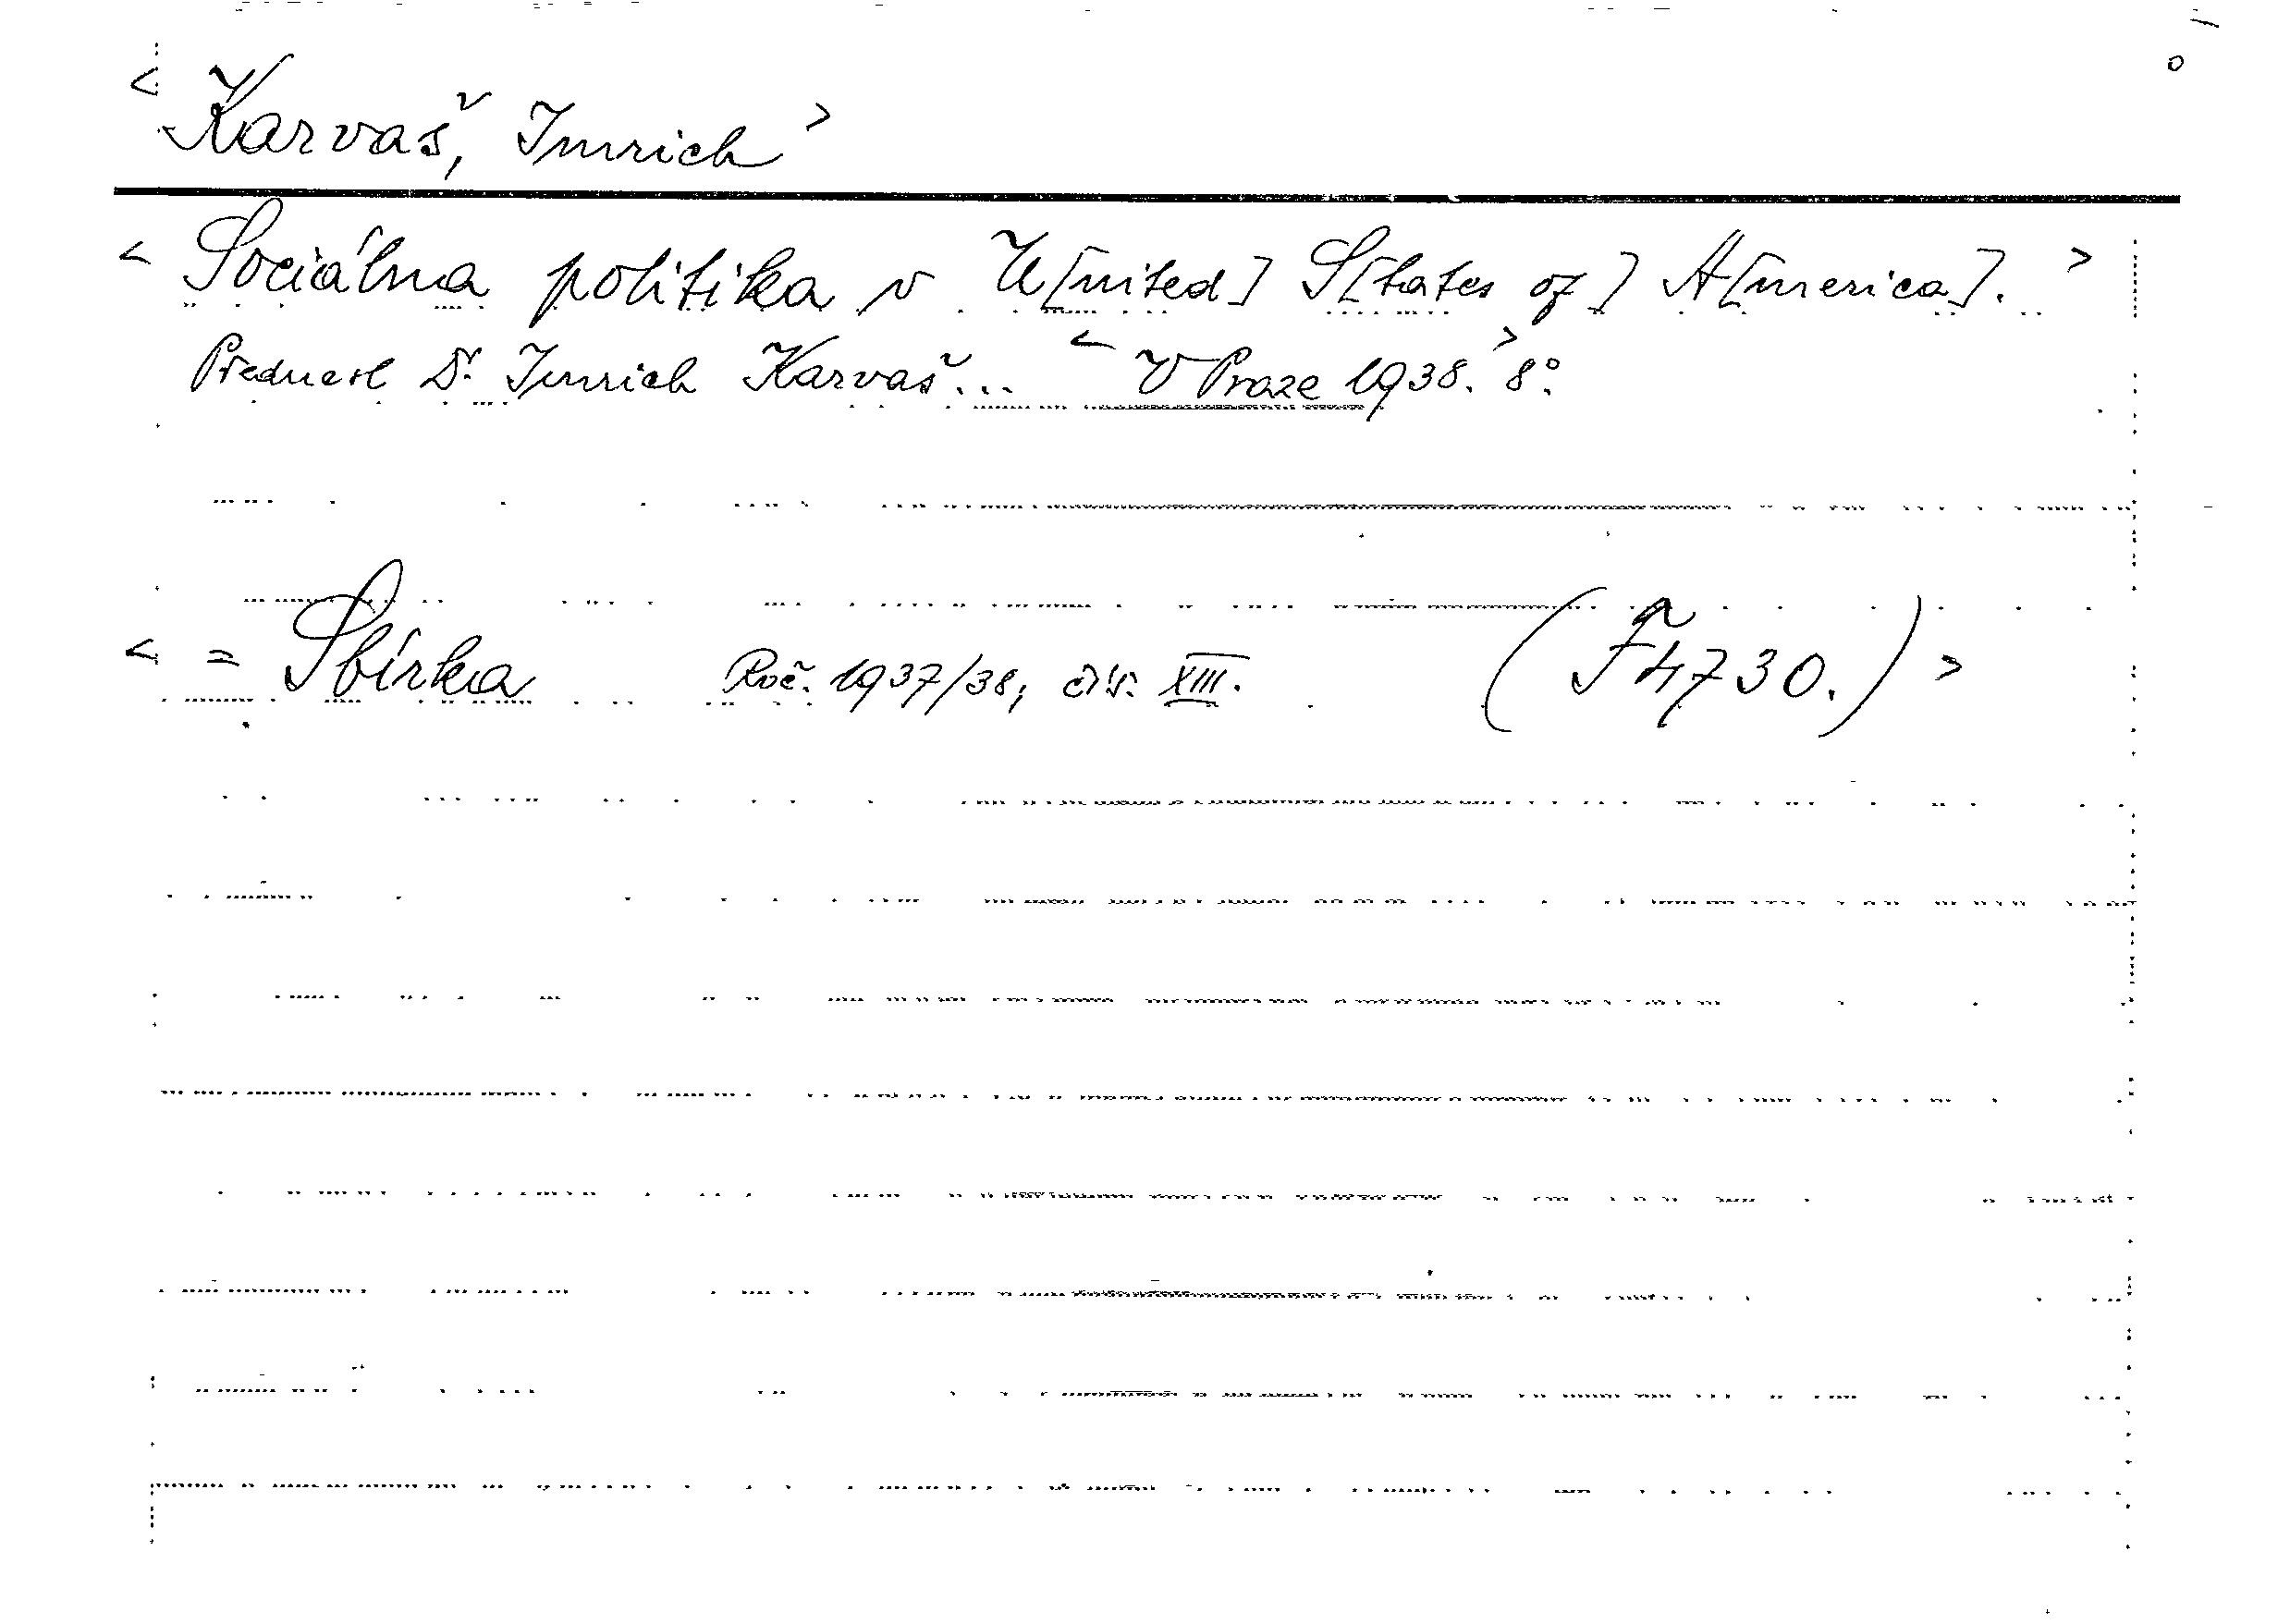 < Karvaš, Imrich >
< Sociálna politika v U[nited] S[tates of] A[merica]. >
Přednesl Dr. Imrich Karvaš... < V Praze 1938. > 8°.
< = Sbírka Roč. 1937/38, čís. XIII. (F 4730.) >